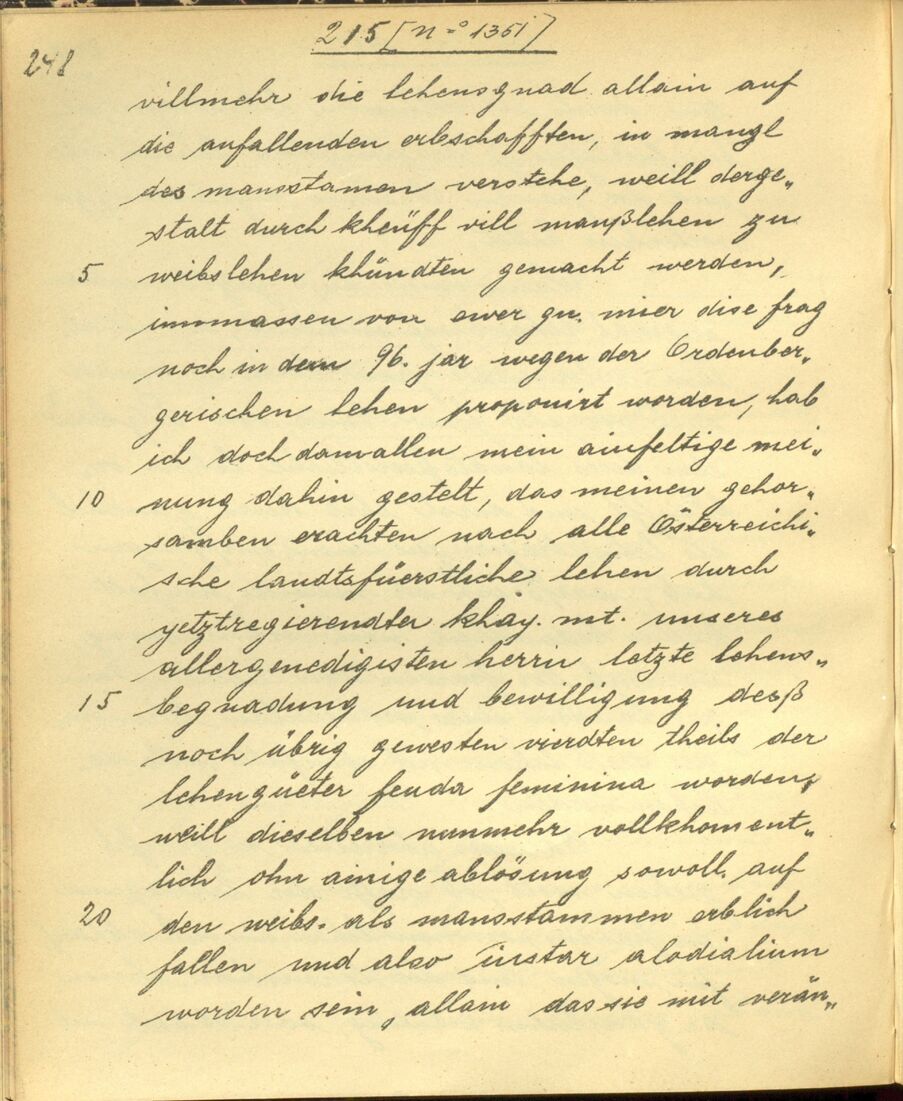 215 [n=o 1351]
248
villmehr die lehensgnad allain auf
die anfallenden erbschafften, in mangl
des mansstamen verstehe, weill derge„
stalt durch kheüff vill manßlehen zu
5 weibslehen khündten gemacht werden,
immassen von ewer gn. mier dise frag
noch in dem 96. jar wegen der Ordenber„
gerischen lehen proponirt worden, hab
ich doch damallen mein ainfeltige mei„
10 nung dahin gestelt, das meinen gehor„
samben erachten nach alle Österreichi„
sche landtsfüerstliche lehen durch
yetztregierendter khay. mt. unseres
allergenedigisten herrn letzte lehens„
15 begnadung und bewilligung desß
noch übrig gewesten vierdten theils der
lehengüeter feuda feminina worden,
weill dieselben nunmehr vollkhoment„
lich ohn ainige ablösung sowoll auf
20 den weibs- als mansstammen erblich
fallen und also instar alodialium
worden sein, allain das sie mit verän„